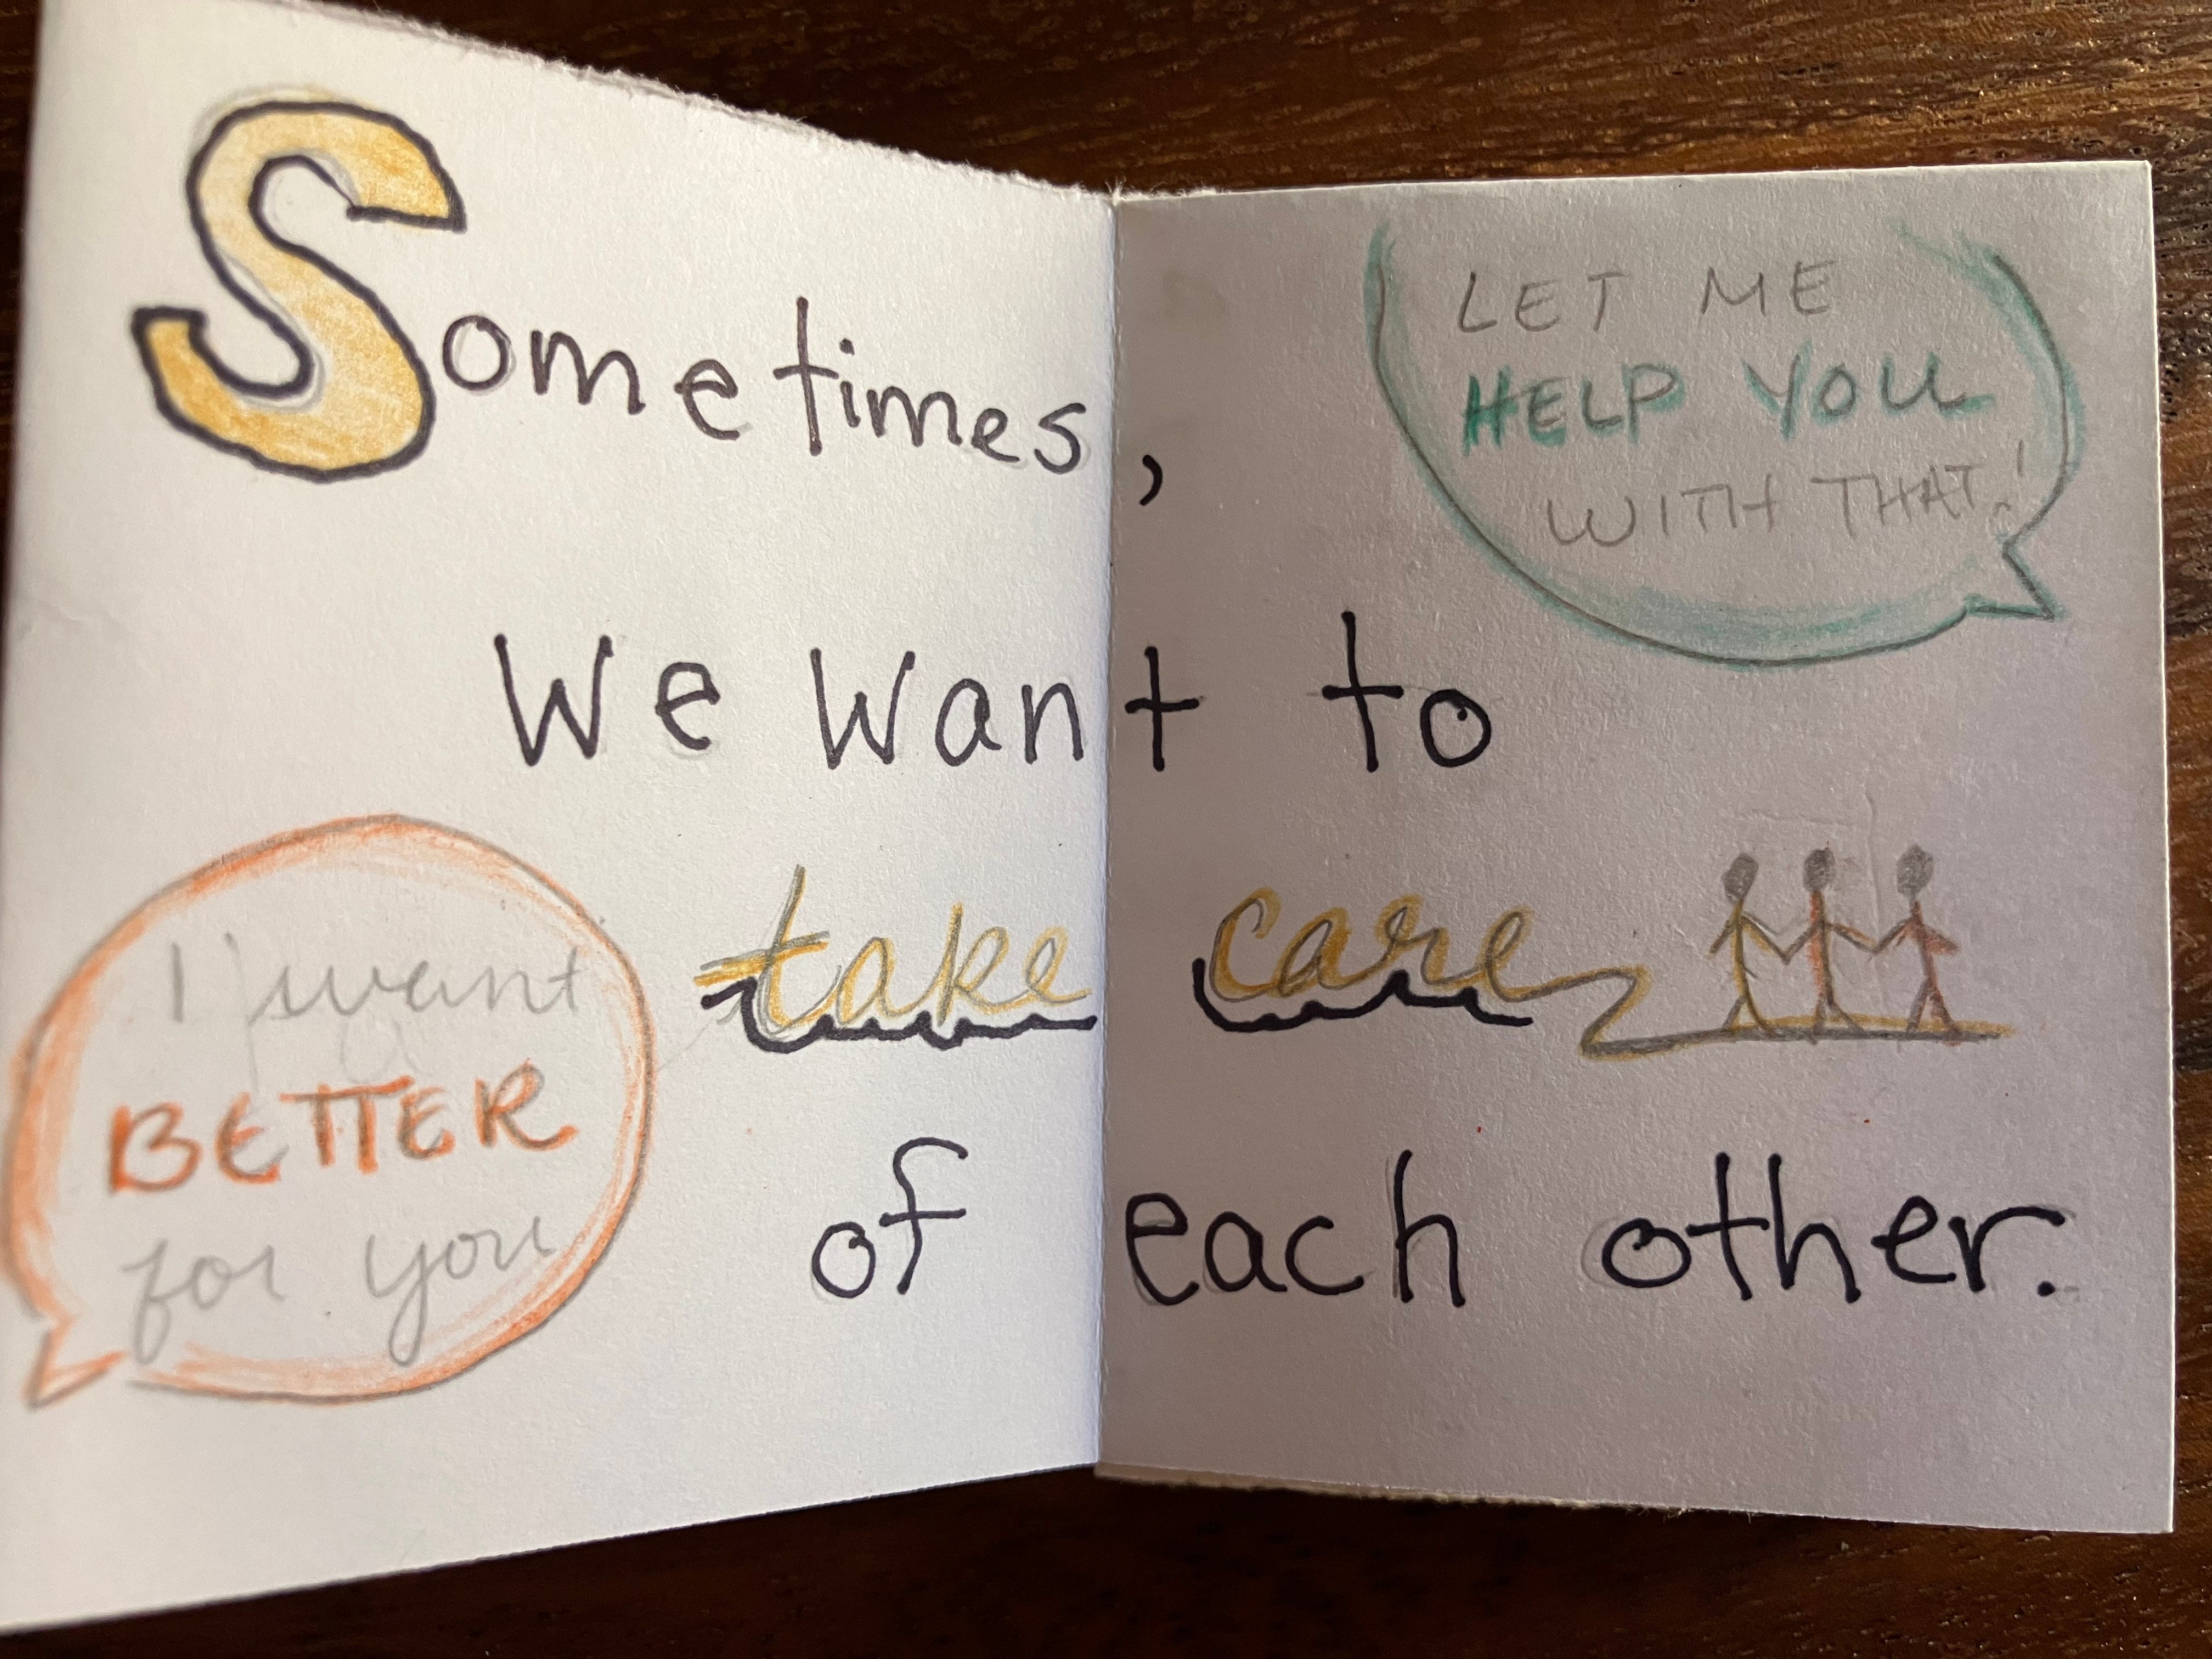 Sometimes,
We want to
take care
of each other.
LET ME
HELP YOU
WITH THAT!
I want
BETTER
for you